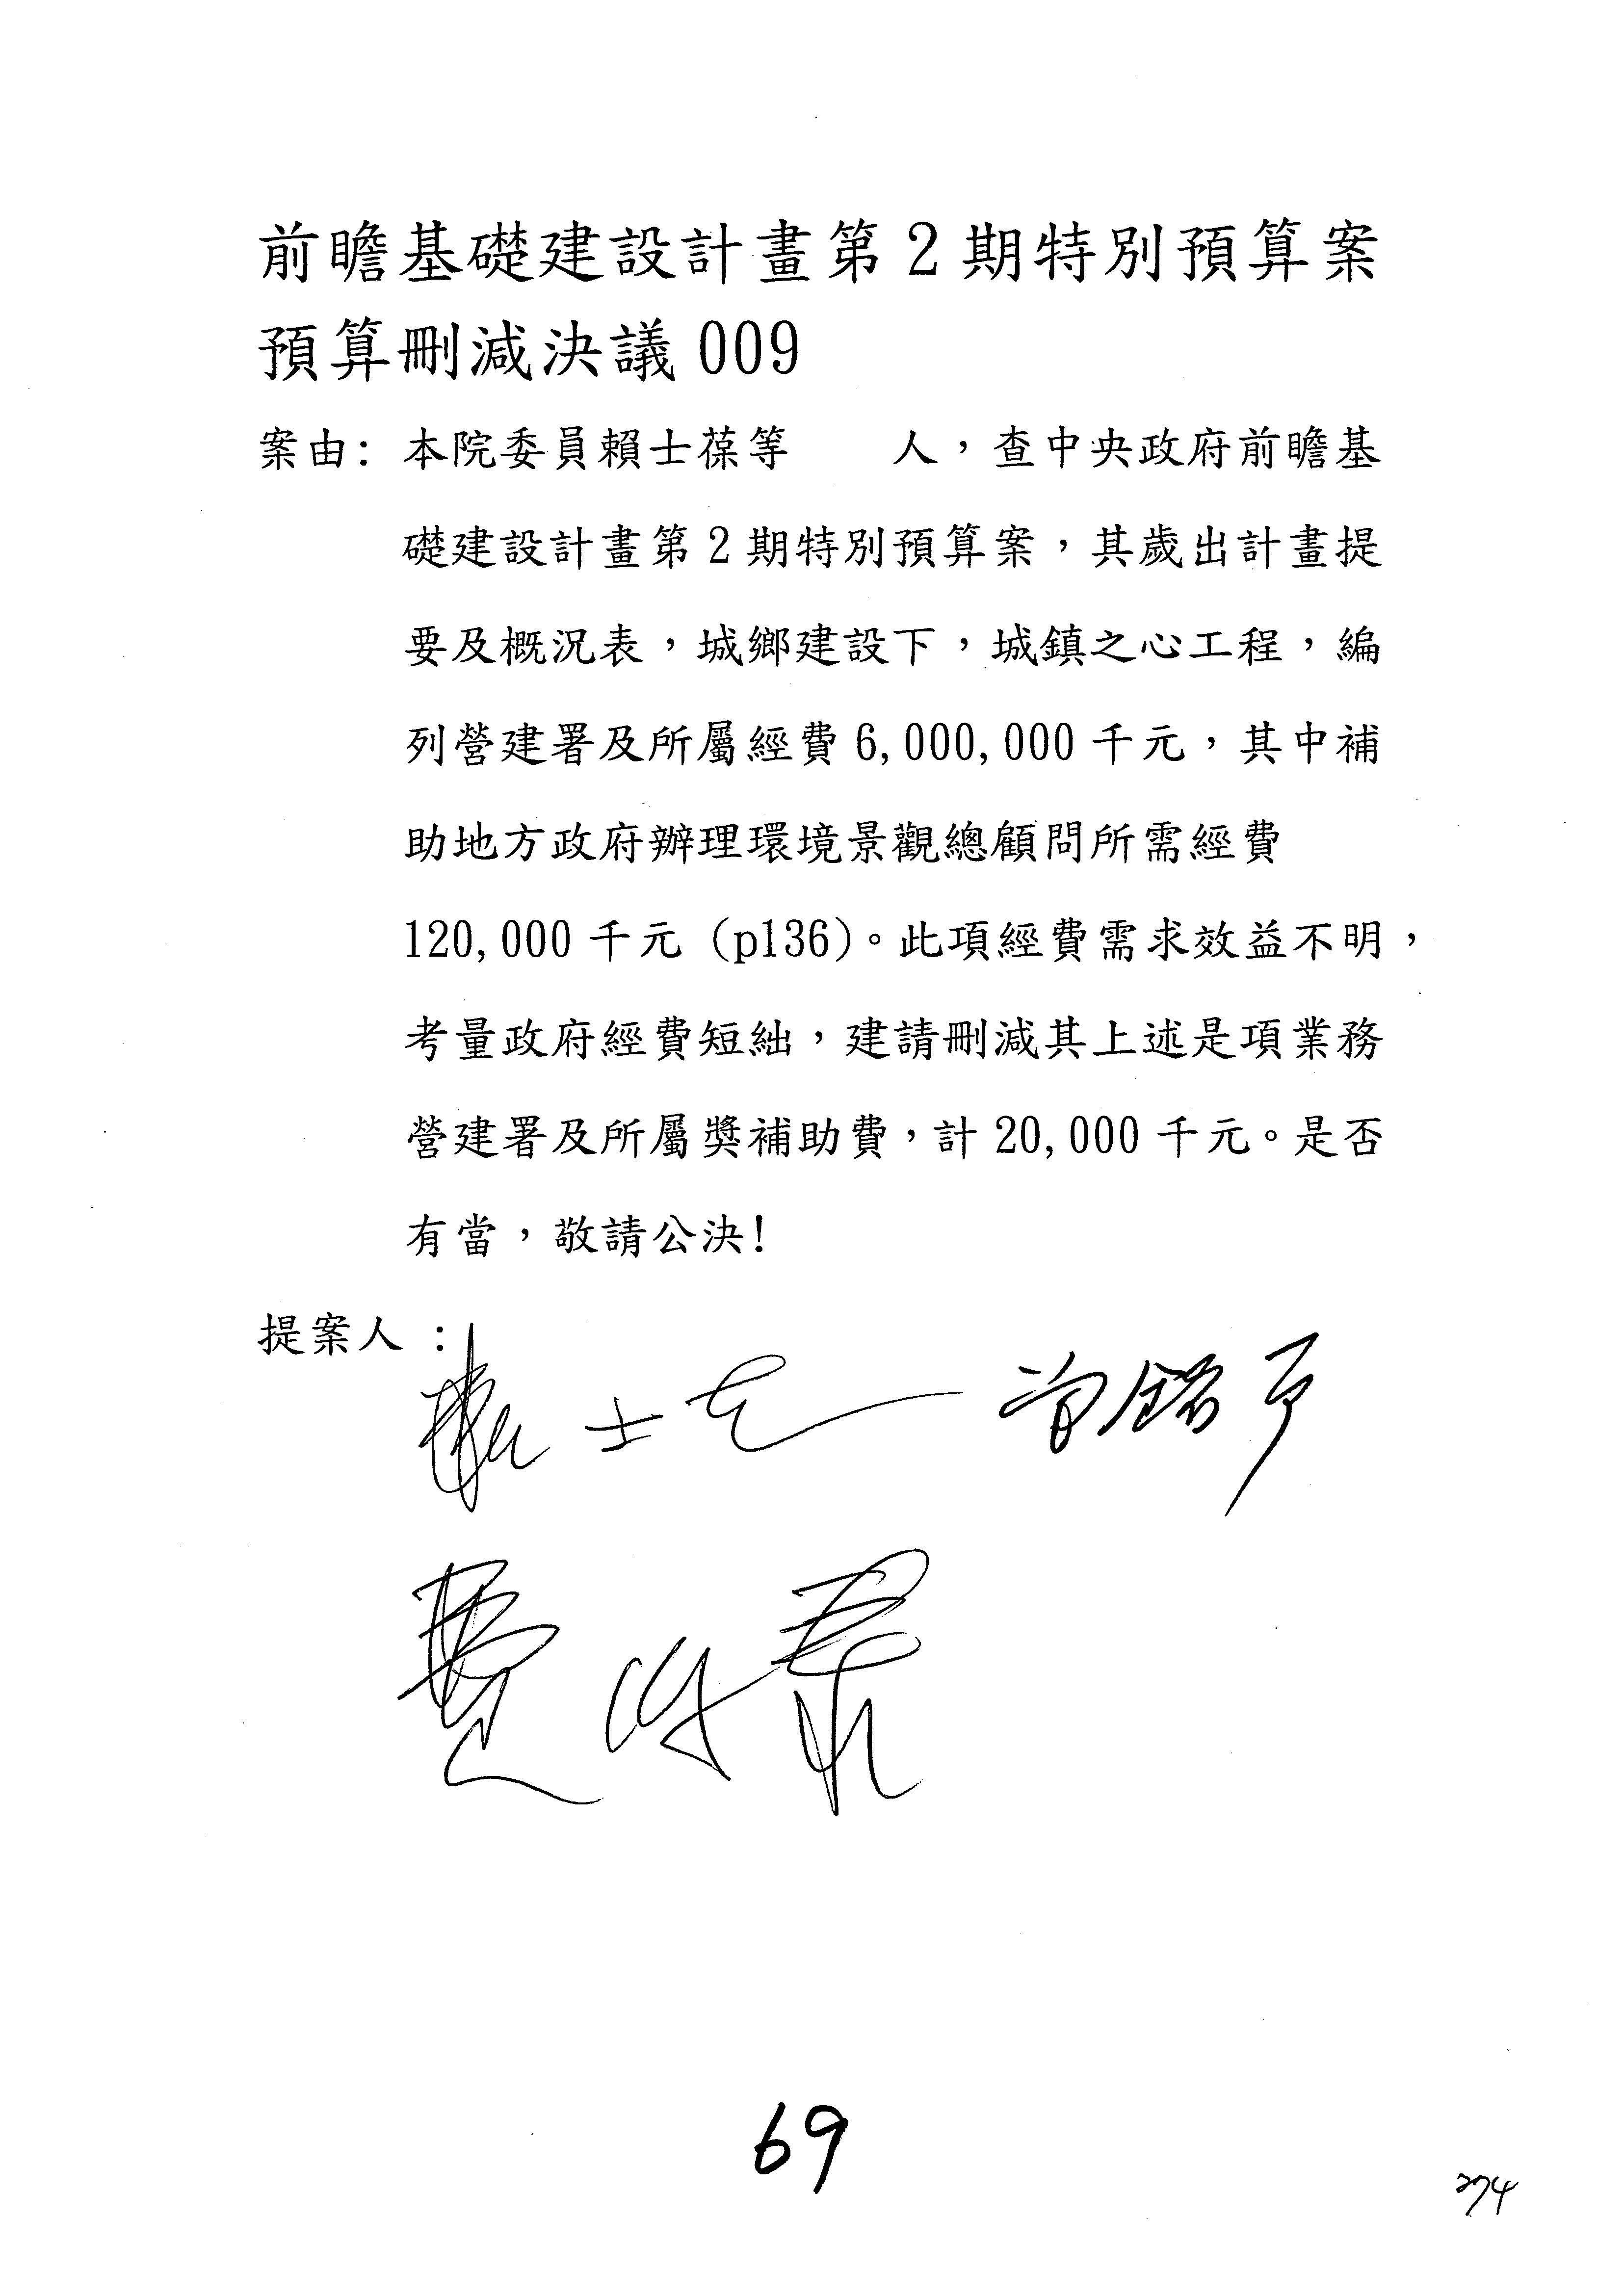 前瞻基礎建設計畫第2期特別預算案
預算刪減決議009
案由：本院委員賴士葆等　　人，查中央政府前瞻基
礎建設計畫第2期特別預算案，其歲出計畫提
要及概況表，城鄉建設下，城鎮之心工程，編
列營建署及所屬經費6,000,000千元，其中補
助地方政府辦理環境景觀總顧問所需經費
120,000千元（p136）。此項經費需求效益不明，
考量政府經費短絀，建請刪減其上述是項業務
營建署及所屬獎補助費，計20,000千元。是否
有當，敬請公決！
提案人：
賴士葆 曾銘宗
費鴻泰
69
274